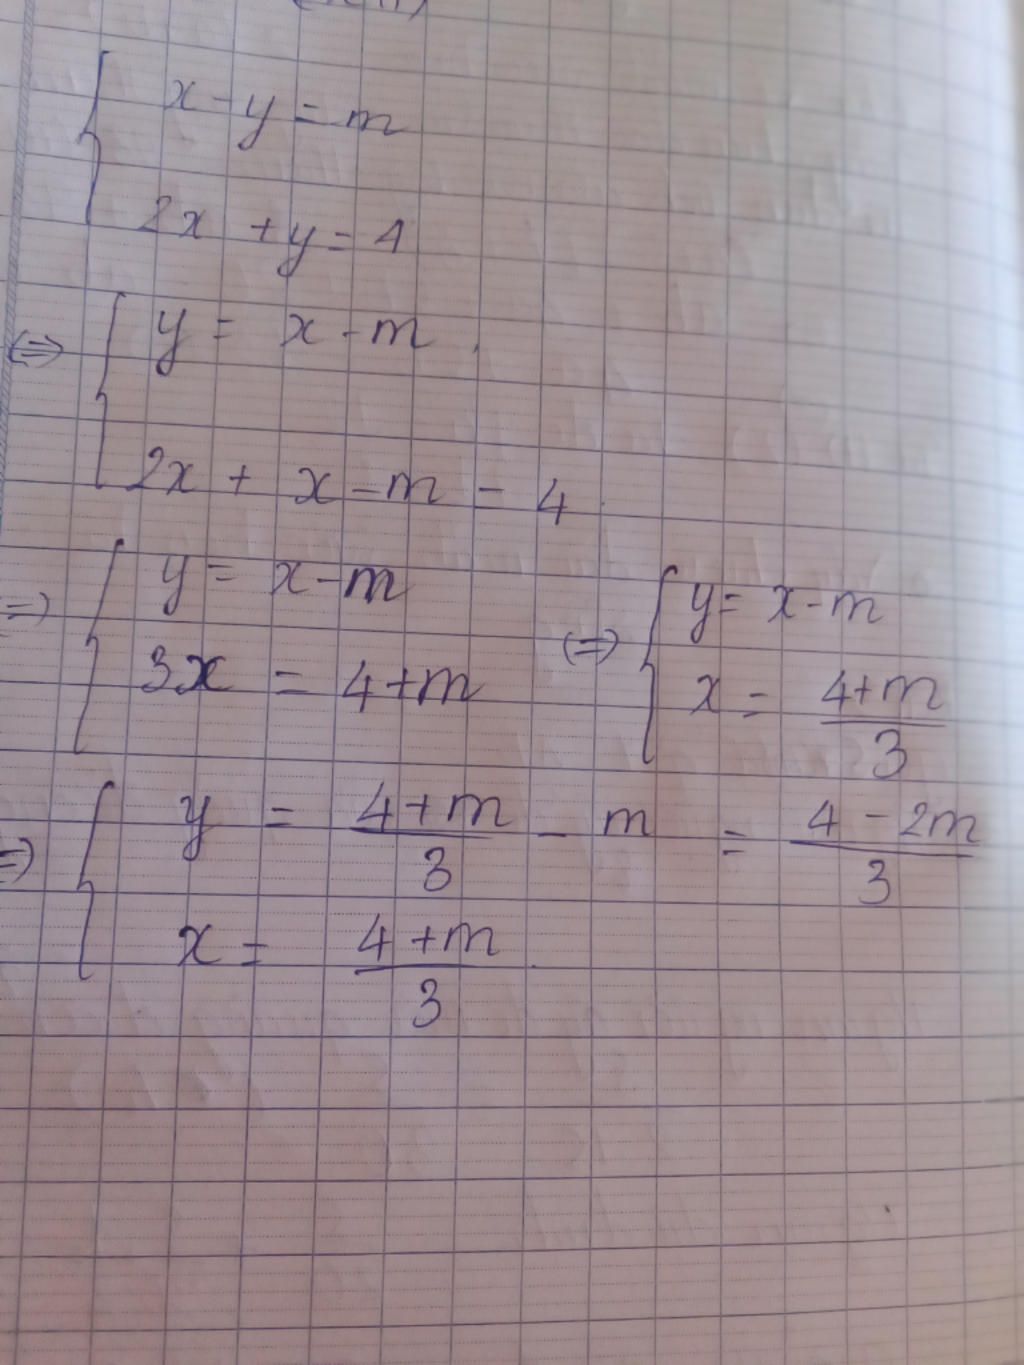 x - y = m
2x + y = 4
⇔ y = x - m
2x + x - m = 4
⇔ y = x - m
3x = 4 + m
⇔ y = x - m
x = (4+m)/3
⇔ y = (4+m)/3 - m = (4-2m)/3
x = (4+m)/3